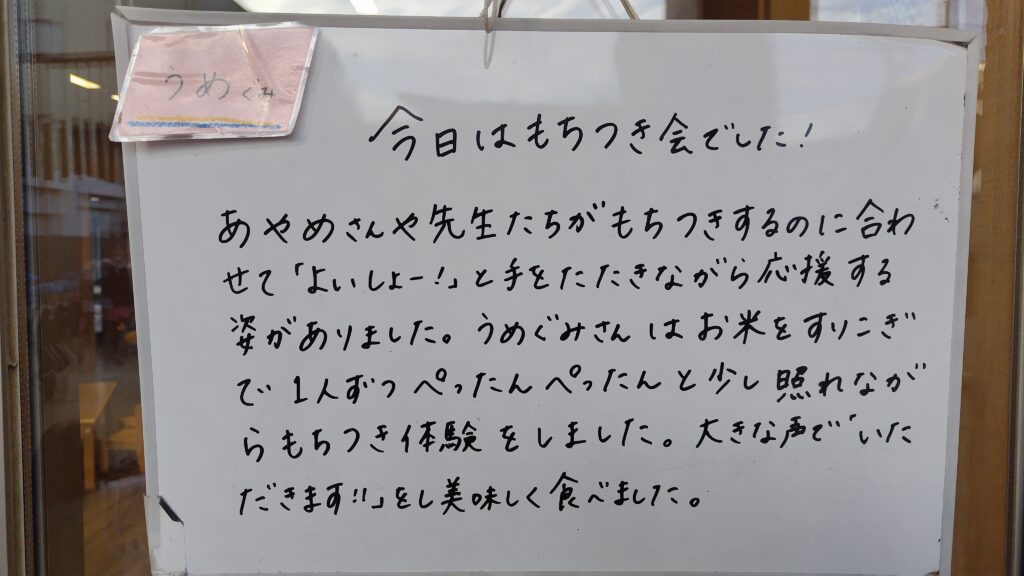 うめぐみ
今日はもちつき会でした!
あやめさんや先生たちがもちつきするのに合わ
せて「よいしょー!」と手をたたきながら応援する
姿がありました。うめぐみさんはお米をすりこぎ
で1人ずつぺったんぺったんと少し照れなが
らもちつき体験をしました。大きな声で「いた
だきます!!」をし美味しく食べました。